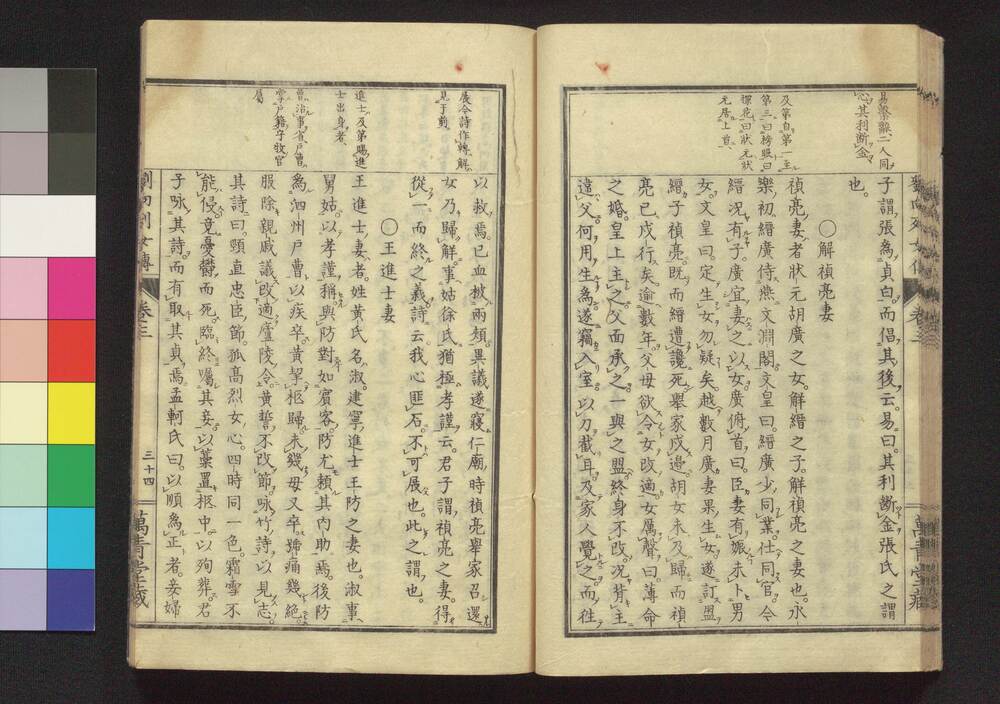 易繫辭二人同
心其利斷金
子謂張為貞白而倡其後云易曰其利斷金張氏之謂
也
及第自第一至
第三曰榜眼曰
探花曰狀元狀
元居上首
○解禎亮妻
禎亮妻者狀元胡廣之女解縉之子解禎亮之妻也永
樂初縉廣侍燕文淵閣文皇曰縉廣少同業仕同官令
縉况有子廣宜妻之以女廣俯首曰臣妻有娠未卜男
女文皇曰定生女勿疑矣越數月廣妻果生女遂訂盟
縉子禎亮既而縉遭讒死舉家戍邊胡女未及歸而禎
亮已戍行矣逾數年父母欲令女改適女厲聲曰薄命
之婚皇上主之父面承之一與之盟終身不改况背主
違父何用生為遂竊入室以刀截耳及家人覺之而徃
以救焉已血被兩頰異議遂寢仁廟時禎亮舉家召還
女乃歸解事姑徐氏猶極孝謹云君子謂禎亮之妻得
從一而終之義詩云我心匪石不可展也此之謂也
展今詩作轉解
見于前
○王進士妻
進士及第賜進
士出身者
曹治事省戶曹
掌戶籍守牧官
屬
王進士妻者姓黃氏名淑建寧進士王防之妻也淑事
舅姑以孝謹稱與防對如賓客防尤賴其内助焉後防
為泗州戶曹以疾卒黃挈柩歸未幾母又卒號痛幾絕
服除親戚議改適廬陵令黃誓不改節咏竹詩以見志
其詩曰勁直忠臣節孤高烈女心四時同一色霜雪不
能侵竟憂鬱而死臨終囑其妾以藁置柩中以殉葬君
子咏其詩而有取其貞焉孟軻氏曰以順為正者妾婦
劉向列女傳
卷三
三十四
萬青堂藏